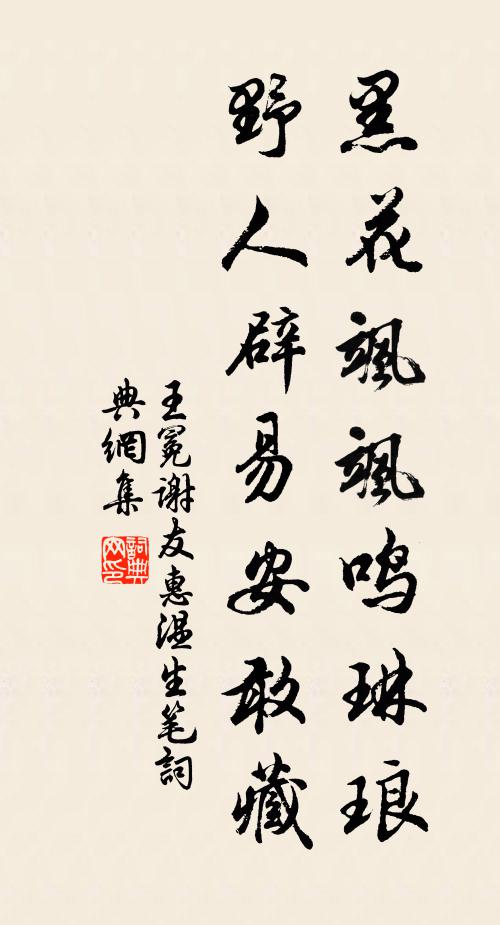 黑花飒飒鸣琳琅
野人辟易安敢藏
王冕谢友惠温生笔詞
典網集
詞典网印